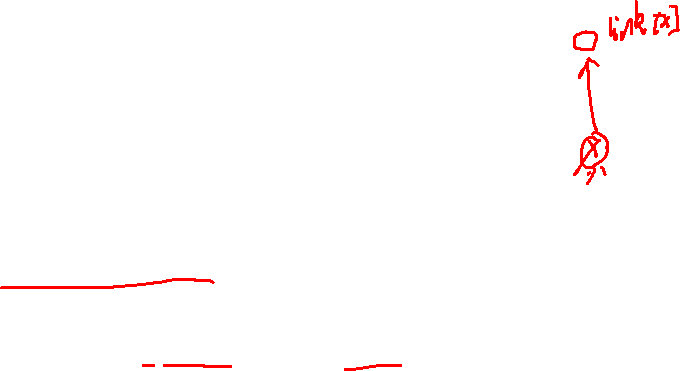 link[x]
x